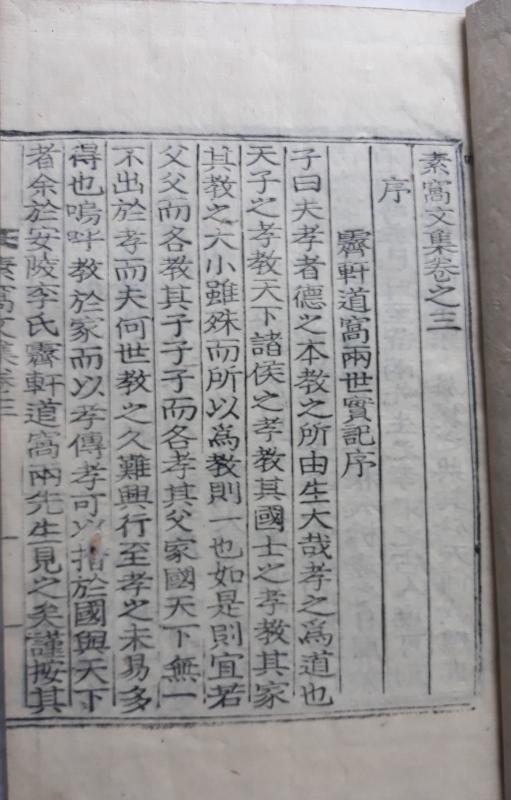 素窩文集卷之三
序
霽軒道窩兩世實記序
子曰夫孝者德之本教之所由生大哉孝之爲道也
天子之孝教天下諸侯之孝教其國士之孝教其家
其教之大小雖殊而所以爲教則一也如是則宜若
父父而各教其子子子而各孝其父家國天下無一
不出於孝而夫何世教之久難興行至孝之未易多
得也嗚呼教於家而以孝傳孝可以措於國與天下
者余於安陵李氏霽軒道窩兩先生見之矣謹按其
素窩文集卷三